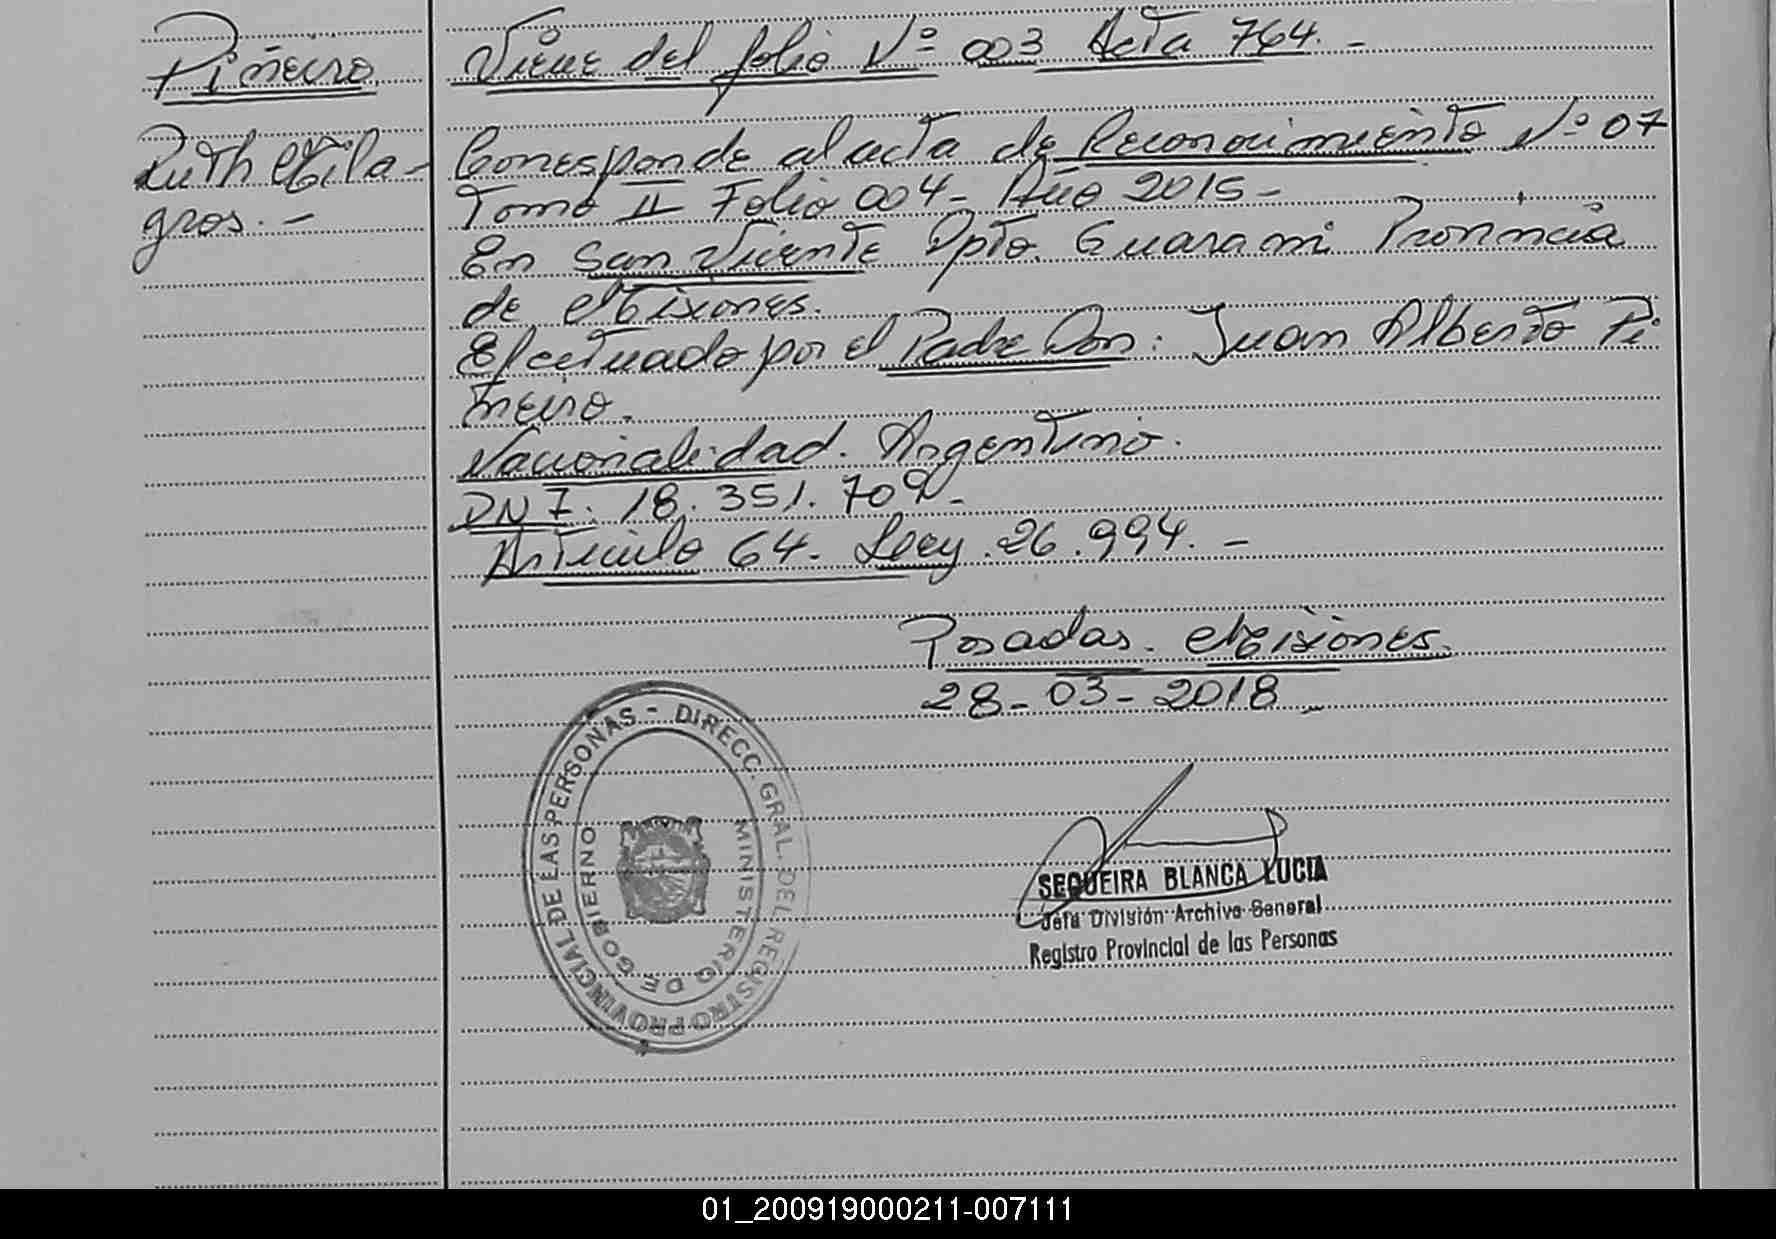 Piñeiro
Ruth Mila-
gros.-
Viene del folio Nº 003 Acta 764.-
Corresponde al acta de Reconocimiento Nº 07
Tomo II Folio 004- Año 2015-
En San Vicente Dpto. Guarani Provincia
de Misiones.
Efectuado por el Padre Don: Juan Alberto Pi
ñeiro.
Nacionalidad. Argentino.
DNI. 18.351.709-
Artículo 64- Ley.26.994.-
Posadas. Misiones.
28-03-2018
DIRECC. GRAL. DEL REGISTRO PROVINCIAL DE LAS PERSONAS -
MINISTERIO DE GOBIERNO
SEQUEIRA BLANCA LUCIA
Jefa División Archivo General
Registro Provincial de las Personas
01_200919000211-007111